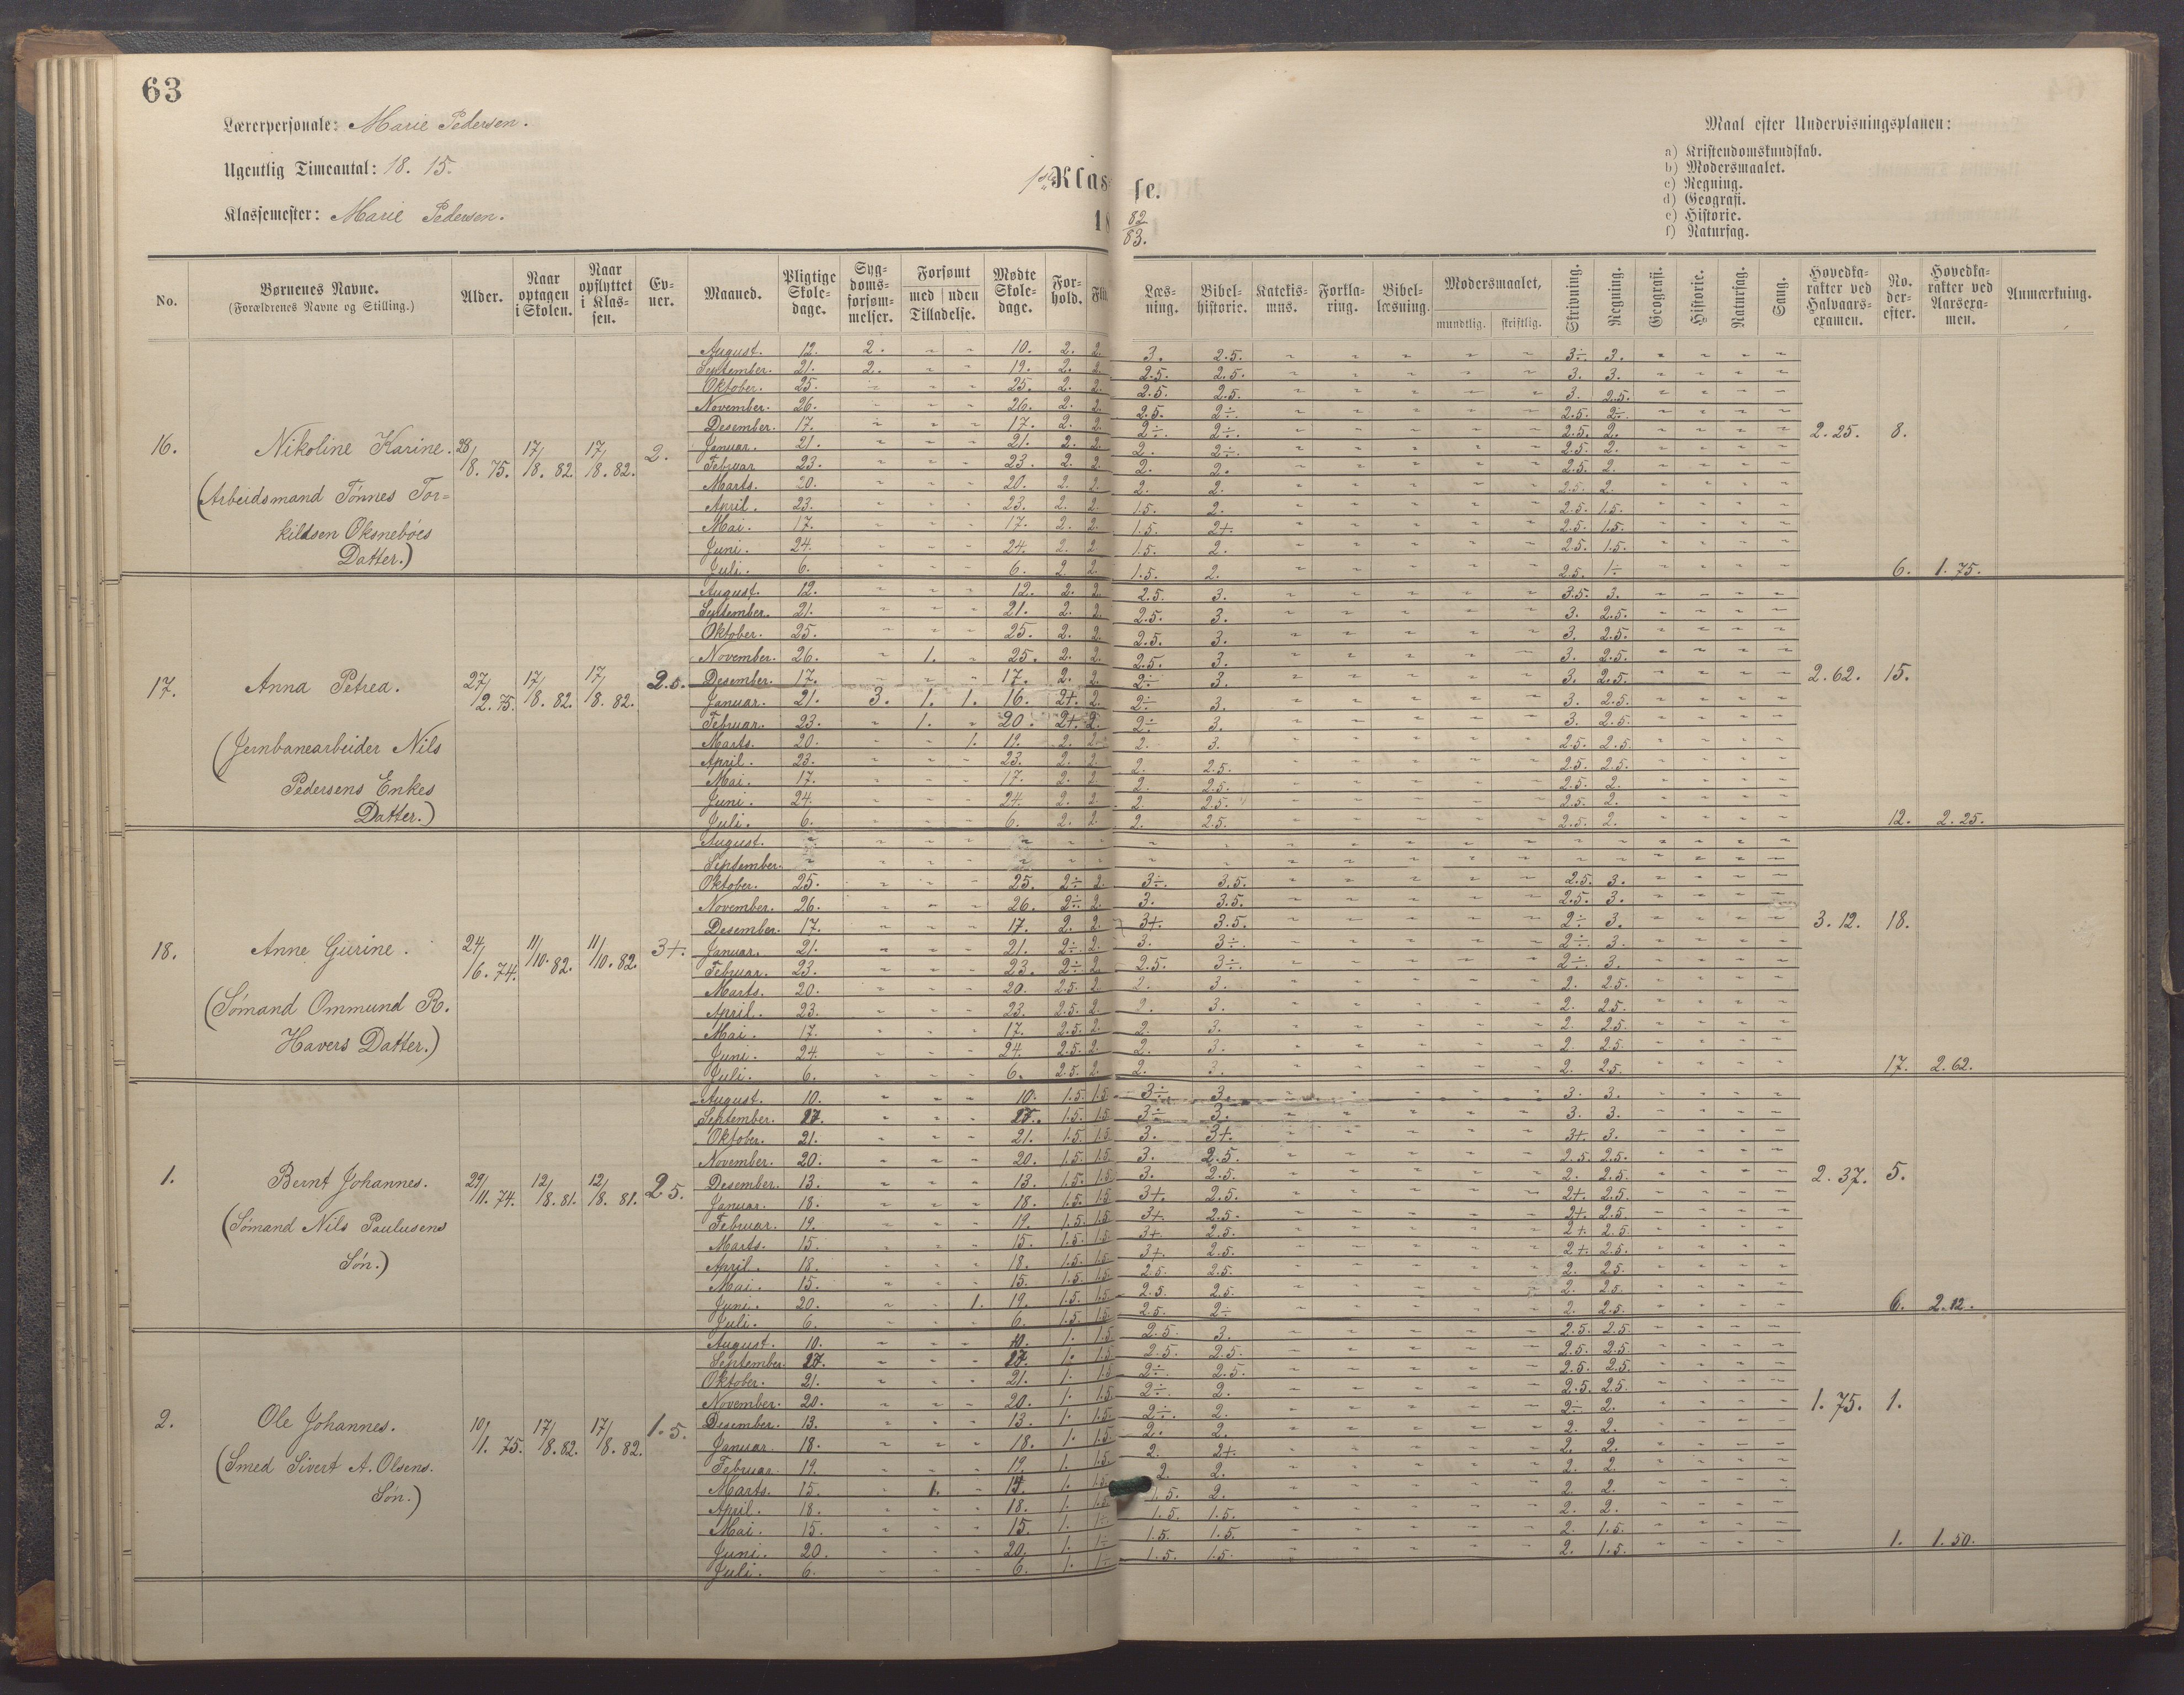 63
Lærerpersonale: Marie Pedersen.
Ugentlig Timeantal: 18. 15.
Klassemester: Marie Pedersen.
1ste Klasse.
18 82/83.
Maal efter Undervisningsplanen:
a) Kristendomskundskab.
b) Modersmaalet.
c) Regning.
d) Geografi.
e) Historie.
f) Naturfag.
No. Børnenes Navne. (Forældrenes Navne og Stilling.) Alder. Naar optagen i Skolen. Naar opflyttet i Klassen. Evner. Maaned. Pligtige Skoledage. Sygdomsforsømmelser. Forsømt med uden Tilladelse. Mødte Skoledage. Forhold. Læsning. Bibelhistorie. Katekismus. Forklaring. Bibellæsning. Modersmaalet, mundtlig. skriftlig. Skrivning. Regning. Geografi. Historie. Naturfag. Sang. Hovedkarakter ved Halvaarsexamen. No. derefter. Hovedkarakter ved Aarsexamen. Anmærkning.
16. Nikoline Karine. 28/8. 75. 17/8. 82. 17/8. 82. 2.
(Arbeidsmand Tónnes Torkildsen Oksnebóes Datter.)
August. 12. 2. " " 10. 2. 2. 3. 2.5. " " " " " 3÷. 3. " " " "
September. 21. 2. " " 19. 2. 2. 2.5. 2.5. " " " " " 3. 3. " " " "
Oktober. 25. " " " 25. 2. 2. 2.5. 2.5. " " " " " 3. 2.5. " " " "
November. 26. " " " 26. 2. 2. 2.5. 2÷. " " " " " 2.5. 2÷. " " " "
Desember. 17. " " " 17. 2. 2. 2÷. 2÷. " " " " " 2.5. 2. " " " " 2.25. 8.
Januar. 21. " " " 21. 2. 2. 2. 2÷. " " " " " 2.5. 2. " " " "
Februar 23. " " " 23. 2. 2. 2. 2. " " " " " 2.5. 2. " " " "
Marts. 20. " " " 20. 2. 2. 2. 2. " " " " " 2.5. 2. " " " "
April. 23. " " " 23. 2. 2. 1.5. 2. " " " " " 2.5. 1.5. " " " "
Mai. 17. " " " 17. 2. 2. 1.5. 2+. " " " " " 2.5. 1.5. " " " "
Juni. 24. " " " 24. 2. 2. 1.5. 2. " " " " " 2.5. 1.5. " " " "
Juli. 6. " " " 6. 2. 2. 1.5. 2. " " " " " 2.5. 1÷ " " " " 6. 1.75.
17. Anna Petrea. 27/2. 75. 17/8. 82. 17/8. 82. 2.5.
(Jernbanearbeider Nils Pedersens Enkes Datter.)
August. 12. " " " 12. 2. 2. 2.5. 3. " " " " " 3.5. 3. " " " "
September. 21. " " " 21. 2. 2. 2.5. 3. " " " " " 3. 2.5. " " " "
Oktober. 25. " " " 25. 2. 2. 2.5. 3. " " " " " 3. 2.5. " " " "
November. 26. " 1. " 25. 2. 2. 2.5. 3. " " " " " 3. 2.5. " " " "
Desember. 17. " " " 17. 2. 2. 2÷ 3. " " " " " 3. 2.5. " " " " 2.62. 15.
Januar. 21. 3. 1. 1. 16. 2+. 2. 2÷ 3. " " " " " 3. 2.5. " " " "
Februar. 23. " 1. " 20. 2+. 2. 2÷ 3. " " " " " 3. 2.5. " " " "
Marts. 20. " " 1. 19. 2. 2. 2. 3. " " " " " 2.5. 2.5. " " " "
April. 23. " " " 23. 2. 2. 2. 2.5. " " " " " 2.5. 2.5. " " " "
Mai. 17. " " " 17. 2. 2. 2. 2.5. " " " " " 2.5. 2. " " " "
Juni. 24. " " " 24. 2. 2. 2. 2.5. " " " " " 2.5. 2. " " " "
Juli. 6. " " " 6. 2. 2. 2. 2.5. " " " " " 2.5. 2. " " " " 12. 2.25.
18. Anne Gurine. 24/6. 74. 11/10. 82. 11/10. 82. 3+.
(Sómand Ommund R. Havers Datter.)
August. " " " " " " " " " " " " " " " " " " " "
September. " " " " " " " " " " " " " " " " " " " "
Oktober. 25. " " " 25. 2÷ 2. 3÷. 3.5. " " " " " 2.5. 3. " " " "
November. 26. " " " 26. 2÷ 2. 3. 3.5. " " " " " 2.5. 3. " " " "
Desember. 17. " " " 17. 2. 2. 3+. 3.5. " " " " " 2÷ 3. " " " " 3.12. 18.
Januar. 21. " " " 21. 2÷ 2. 3. 3÷. " " " " " 2÷. 3. " " " "
Februar. 23. " " " 23. 2÷ 2. 2.5. 3÷. " " " " " 2÷. 3. " " " "
Marts. 20. " " " 20. 2.5. 2. 2. 3. " " " " " 2. 2.5. " " " "
April. 23. " " " 23. 2.5. 2. 2. 3. " " " " " 2. 2.5. " " " "
Mai. 17. " " " 17. 2.5. 2. 2. 3. " " " " " 2. 2.5. " " " "
Juni. 24. " " " 24. 2.5. 2. 2. 3. " " " " " 2. 2.5. " " " "
Juli. 6. " " " 6. 2.5. 2. 2. 3. " " " " " 2. 2.5. " " " " 17. 2.62.
1. Bernt Johannes. 29/11. 74. 12/8. 81. 12/8. 81. 2.5.
(Sómand Nils Paulusens Són.)
August. 10. " " " 10. 1.5. 1.5. 3÷ 3. " " " " " 3. 3. " " " "
September. 17. " " " 17. 1.5. 1.5. 3÷ 3. " " " " " 3. 3. " " " "
Oktober. 21. " " " 21. 1.5. 1.5. 3. 3+. " " " " " 3+. 3. " " " "
November. 20. " " " 20. 1.5. 1.5. 3. 2.5. " " " " " 2.5. 2.5. " " " "
Desember. 13. " " " 13. 1.5. 1.5. 3. 2.5. " " " " " 2. 2.5. " " " " 2.37. 5.
Januar. 18. " " " 18. 1.5. 1.5. 3+. 2.5. " " " " " 2+. 2.5. " " " "
Februar. 19. " " " 19. 1.5. 1.5. 3+. 2.5. " " " " " 2+. 2.5. " " " "
Marts. 15. " " " 15. 1.5. 1.5. 3+. 2.5. " " " " " 2+. 2.5. " " " "
April. 18. " " " 18. 1.5. 1.5. 3+. 2.5. " " " " " 2+. 2.5. " " " "
Mai. 15. " " " 15. 1.5. 1.5. 2.5. 2.5. " " " " " 2. 2.5. " " " "
Juni. 20. " " 1. 19. 1.5. 1.5. 2.5. 2.5. " " " " " 2. 2.5. " " " "
Juli. 6. " " " 6. 1.5. 1.5. 2.5. 2÷ " " " " " 2. 2.5. " " " " 6. 2.12.
2. Ole Johannes. 10/1. 75. 17/8. 82. 17/8. 82. 1.5.
(Smed Sivert A. Olsens. Són.)
August. 10. " " " 10. 1. 1.5. 2.5. 3. " " " " " 2.5. 2.5. " " " "
September. 17. " " " 17. 1. 1.5. 2.5. 2.5. " " " " " 2.5. 2.5. " " " "
Oktober. 21. " " " 21. 1. 1.5. 2÷ 2.5. " " " " " 2.5. 2.5. " " " "
November. 20. " " " 20. 1. 1.5. 2÷. 2. " " " " " 2.5. 2.5. " " " "
Desember. 13. " " " 13. 1. 1.5. 2÷. 2. " " " " " 2÷ 2. " " " " 1.75. 1.
Januar. 18. " " " 18. 1. 1.5. 2. 2. " " " " " 2. 2. " " " "
Februar. 19. " " " 19. 1. 1.5. 2. 2+. " " " " " 2. 2. " " " "
Marts. 15. " 1. " 14. 1. 1.5. 2. 2. " " " " " 2. 2. " " " "
April. 18. " " " 18. 1. 1.5. 1.5. 2. " " " " " 2. 2. " " " "
Mai. 15. " " " 15. 1. 1÷ 1.5. 1.5. " " " " " 2. 2. " " " "
Juni. 20. " " " 20. 1. 1÷ 1.5. 1.5. " " " " " 2. 1.5. " " " "
Juli. 6. " " " 6. 1. 1÷ 1.5. 1.5. " " " " " 2. 1.5. " " " " 1. 1.50.